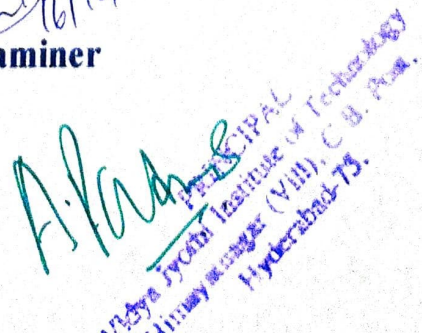 16/
aminer
PRINCIPAL
Vidya Jyothi Institute of Technology
Himayatnagar (Vill), C.B. Post,
Hyderabad-75.